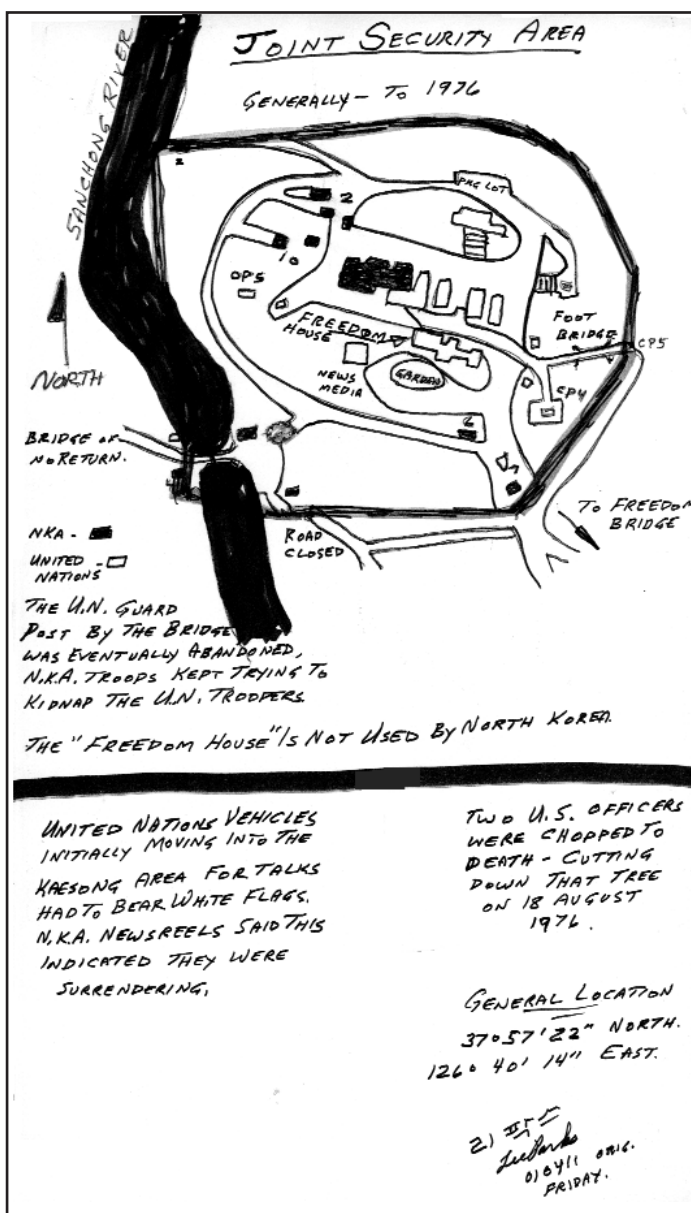 JOINT SECURITY AREA
GENERALLY - TO 1976
SANCHONG RIVER
PKG LOT
2
10
OP5
FOOT
BRIDGE
CP5
FREEDOM
HOUSE
NEWS
MEDIA
GARDEN
CP4
6
NORTH
BRIDGE OF
NO RETURN.
TO FREEDOM
BRIDGE
ROAD
CLOSED
NKA -
UNITED -
NATIONS
THE U.N. GUARD
POST BY THE BRIDGE
WAS EVENTUALLY ABANDONED,
N.K.A. TROOPS KEPT TRYING TO
KIDNAP THE U.N. TROOPERS.
THE "FREEDOM HOUSE" IS NOT USED BY NORTH KOREA.
UNITED NATIONS VEHICLES
INITIALLY MOVING INTO THE
KAESONG AREA FOR TALKS
HAD TO BEAR WHITE FLAGS.
N.K.A. NEWSREELS SAID THIS
INDICATED THEY WERE
SURRENDERING.
TWO U.S. OFFICERS
WERE CHOPPED TO
DEATH - CUTTING
DOWN THAT TREE
ON 18 AUGUST
1976.
GENERAL LOCATION
37° 57' 22" NORTH.
126° 40' 14" EAST.
21
010411 ORIG.
FRIDAY.